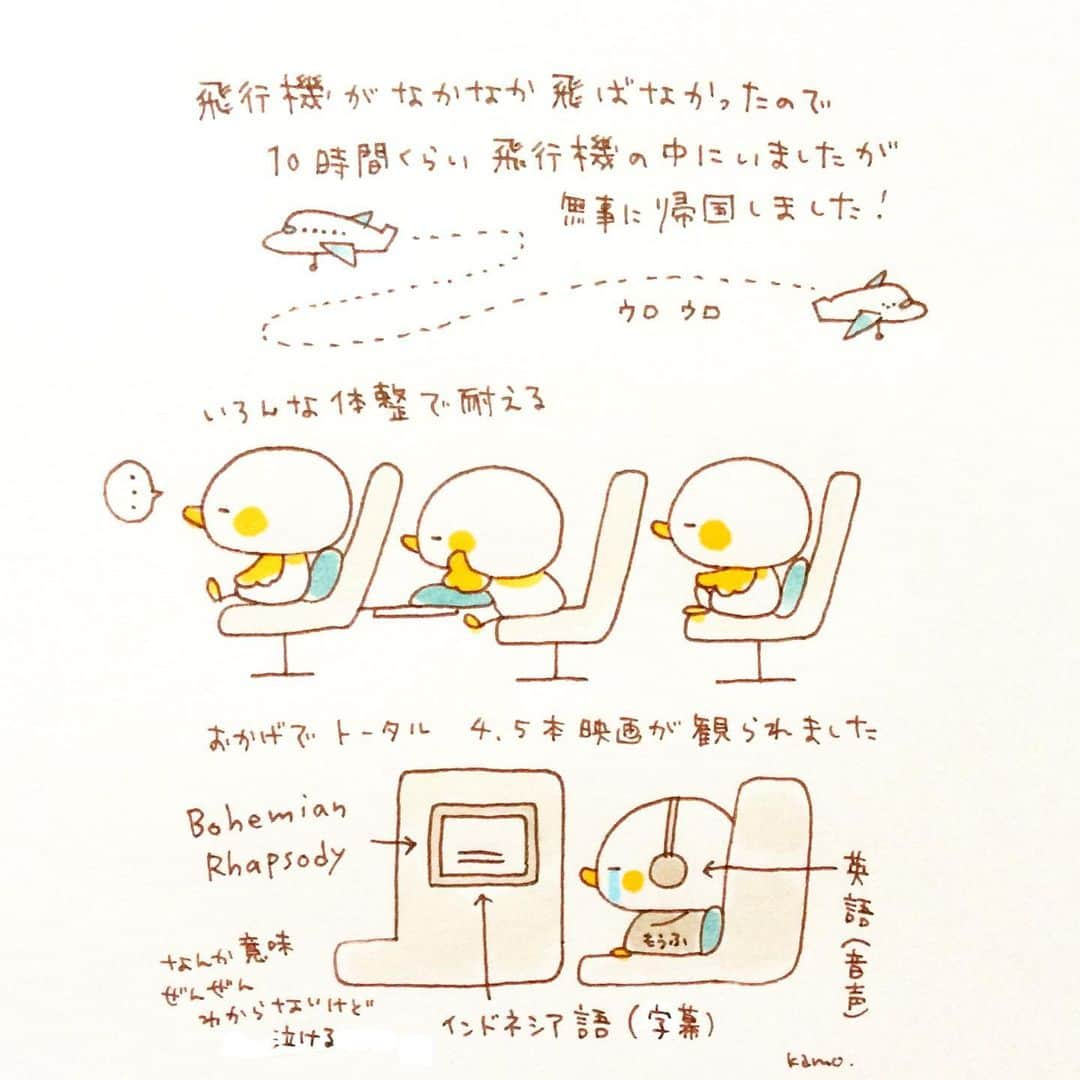 飛行機がなかなか飛ばなかったので
10時間くらい飛行機の中にいましたが
無事に帰国しました!
ウロウロ
いろんな体整で耐える
...
おかげでトータル 4.5本映画が観られました
Bohemian
Rhapsody
英語(音声)
もうふ
なんか意味
ぜんぜん
わからないけど
泣ける
インドネシア語(字幕)
kamo.